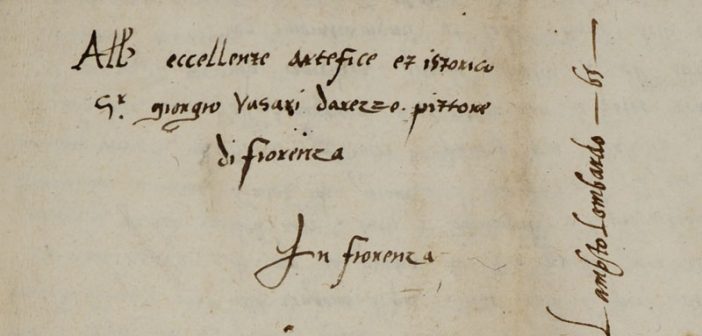 All' eccellente artefice et istorico
Sr. giorgio Vasari darezzo pittore
di fiorenza
In fiorenza
Lamb.to Lombardo — 65 —